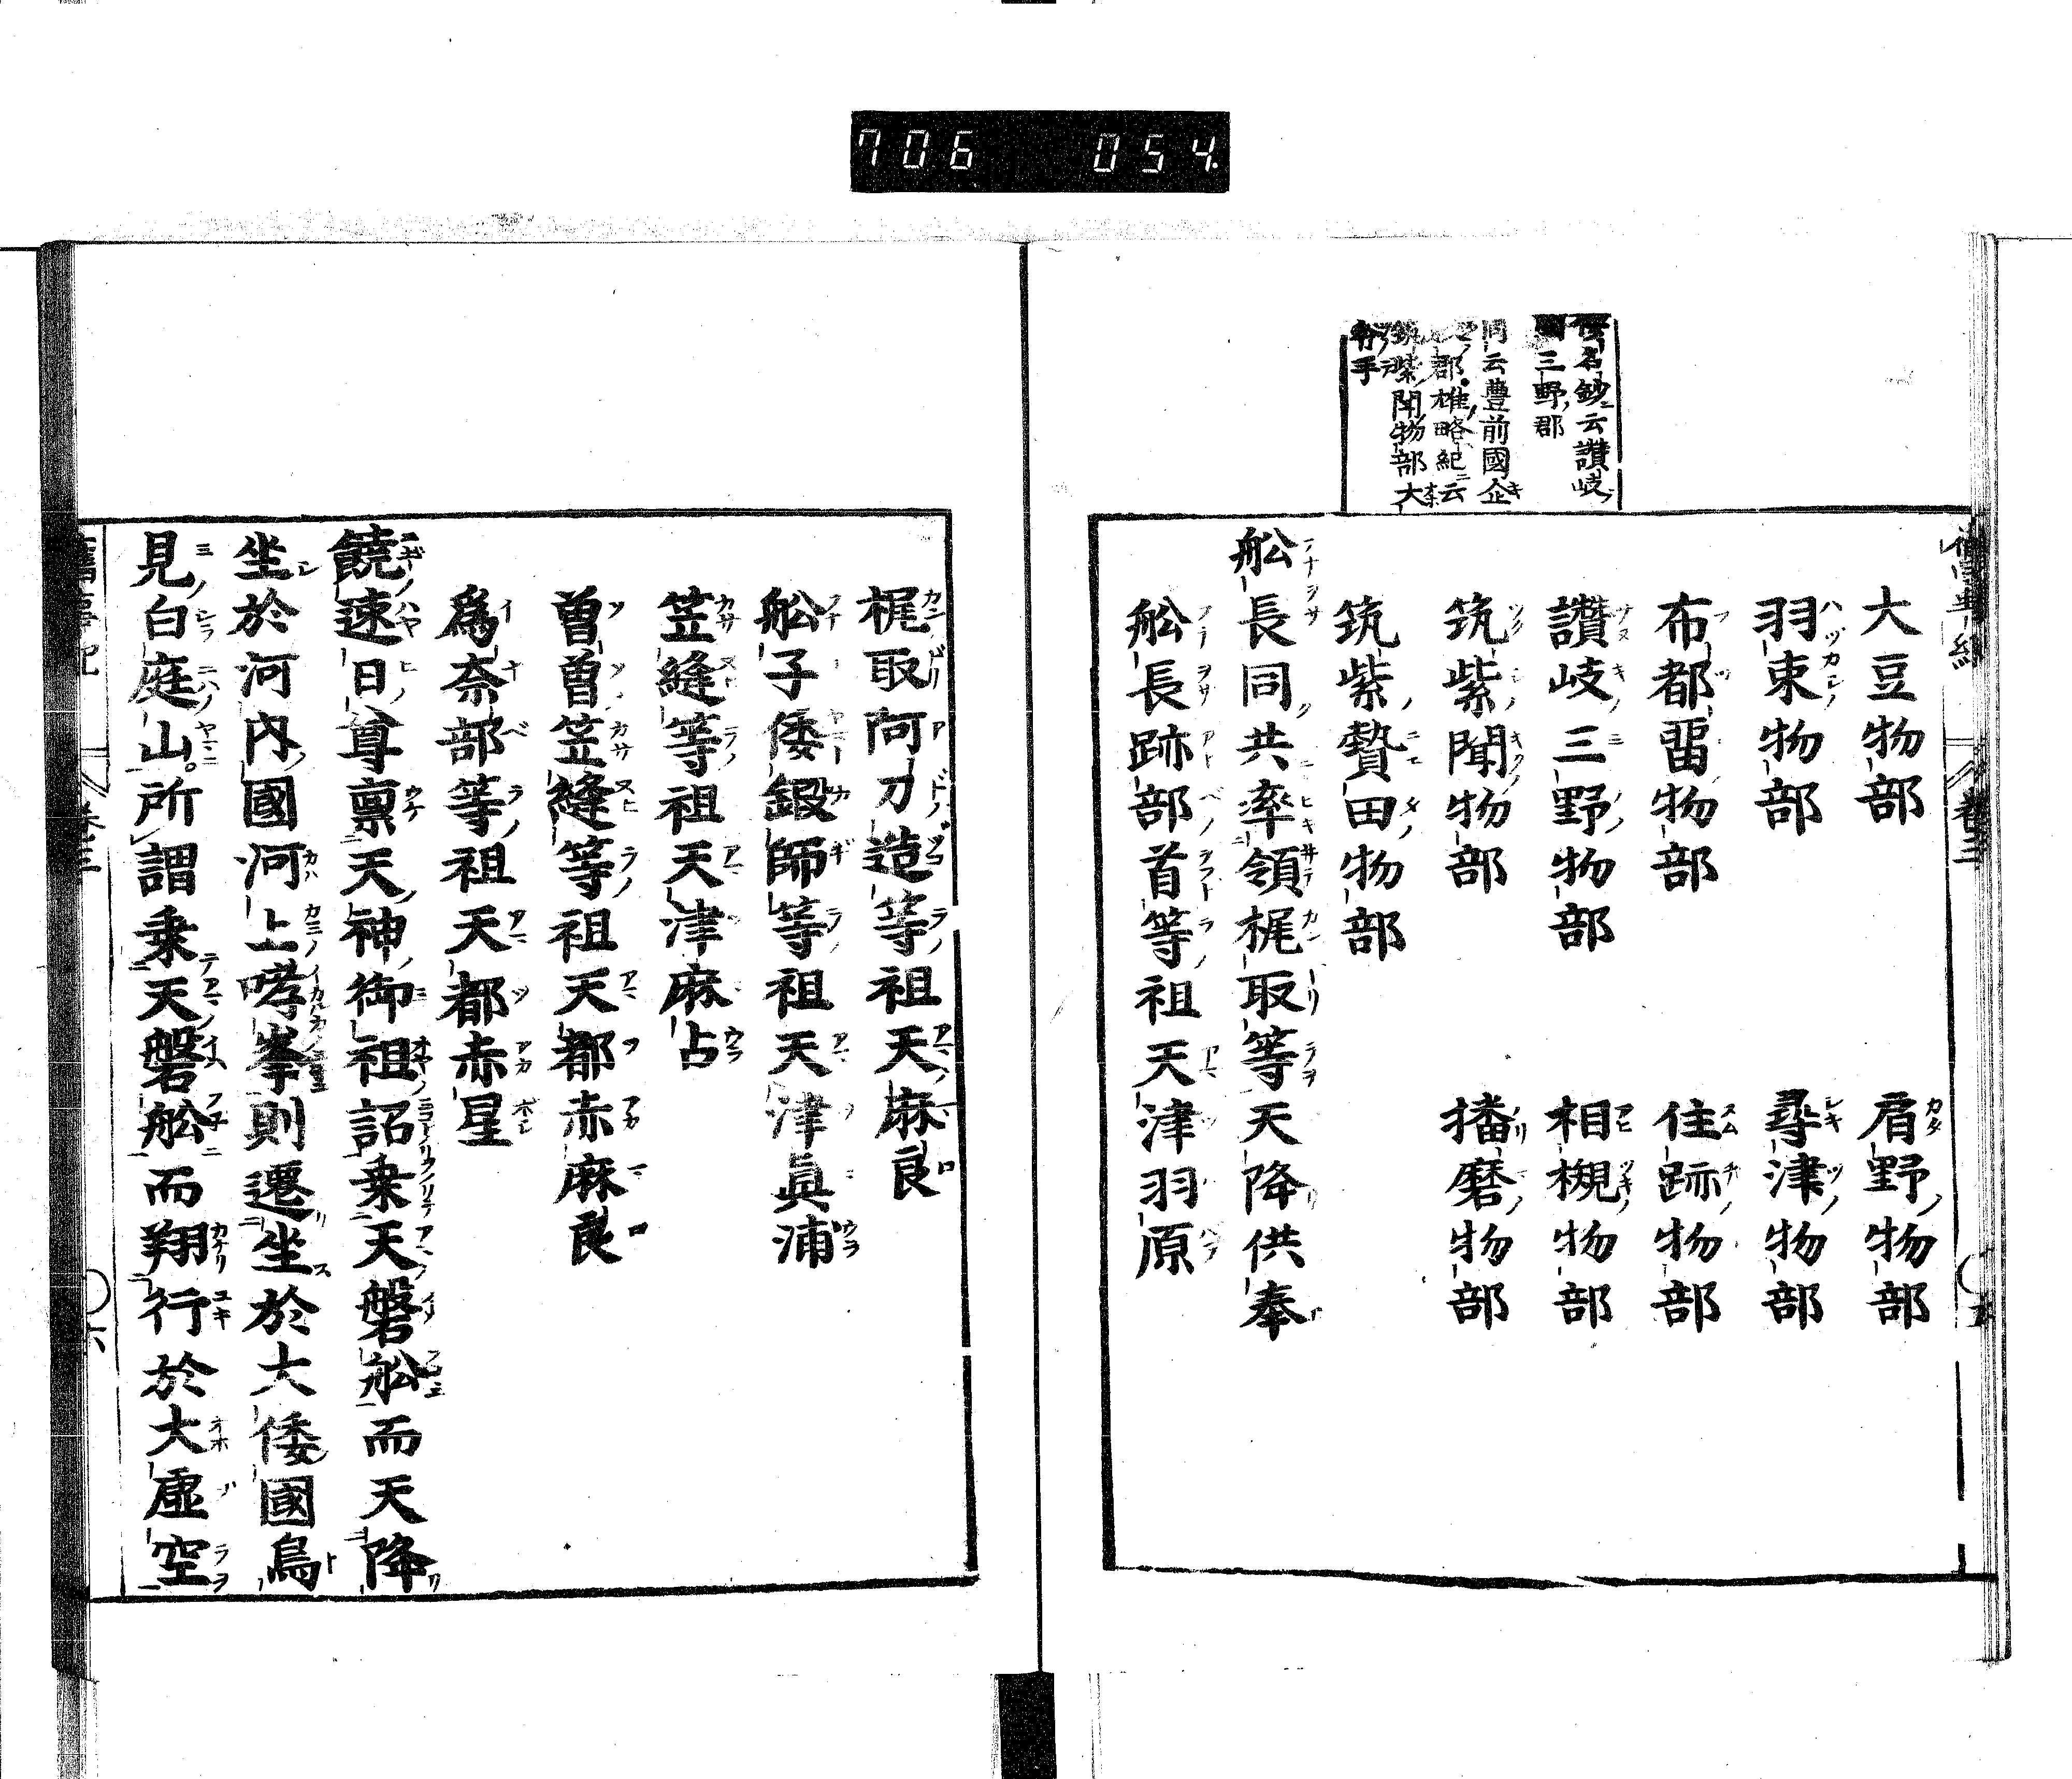 706 054
倭名鈔云讃岐
國三野郡
同云豊前國企
郡雄略紀云
筑紫聞物部大
斧手
大豆物部 肩野物部
羽束物部 尋津物部
布都留物部 住跡物部
讃岐三野物部 相槻物部
筑紫聞物部 播磨物部
筑紫贄田物部
舩長同共率領梶取等天降供奉
舩長跡部首等祖天津羽原
梶取阿刀造等祖天麻良
舩子倭鍛師等祖天津眞浦
笠縫等祖天津麻占
曽曽笠縫等祖天都赤麻良
爲奈部等祖天都赤星
饒速日尊禀天神御祖詔乗天磐舩而天降
坐於河内國河上哮峯則遷坐於大倭國鳥
見白庭山所謂乗天磐舩而翔行於大虚空
舊事記 卷三 六